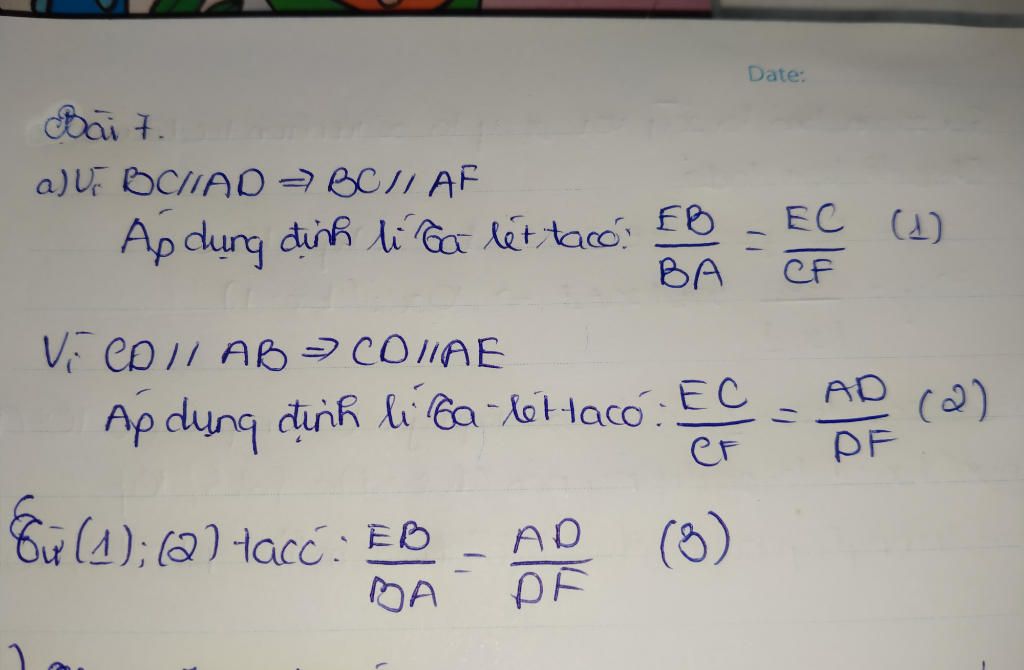 Date:
Bài 7.
a) Vì BC // AD => BC // AF
Áp dụng định lí Ta-lét, ta có: EB/BA = EC/CF (1)
Vì CD // AB => CD // AE
Áp dụng định lí Ta-lét ta có: EC/CF = AD/DF (2)
Từ (1); (2) ta có: EB/BA = AD/DF (3)